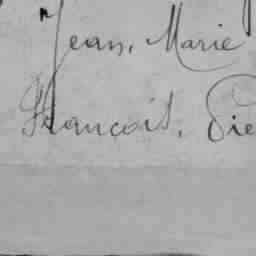 Jean, Marie
François, Pie